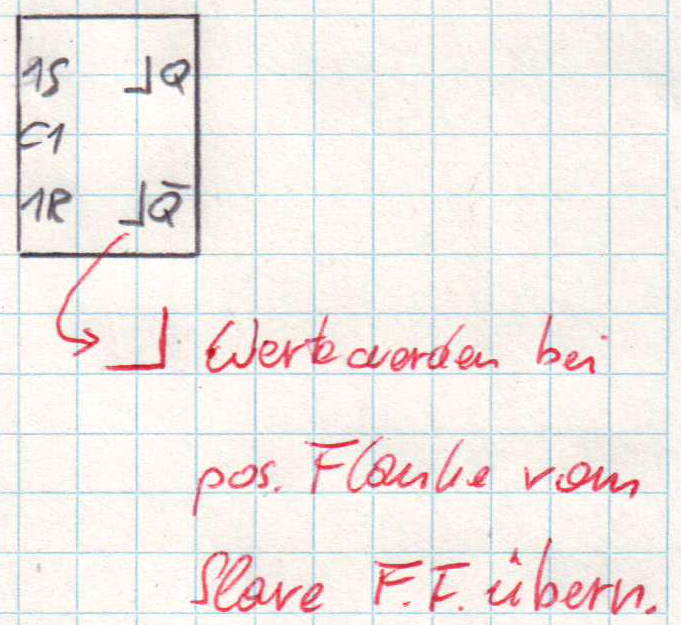 1S ┘Q
C1
1R ┘Q̄
┘ Werte werden bei
pos. Flanke vom
Slave F.F. übern.